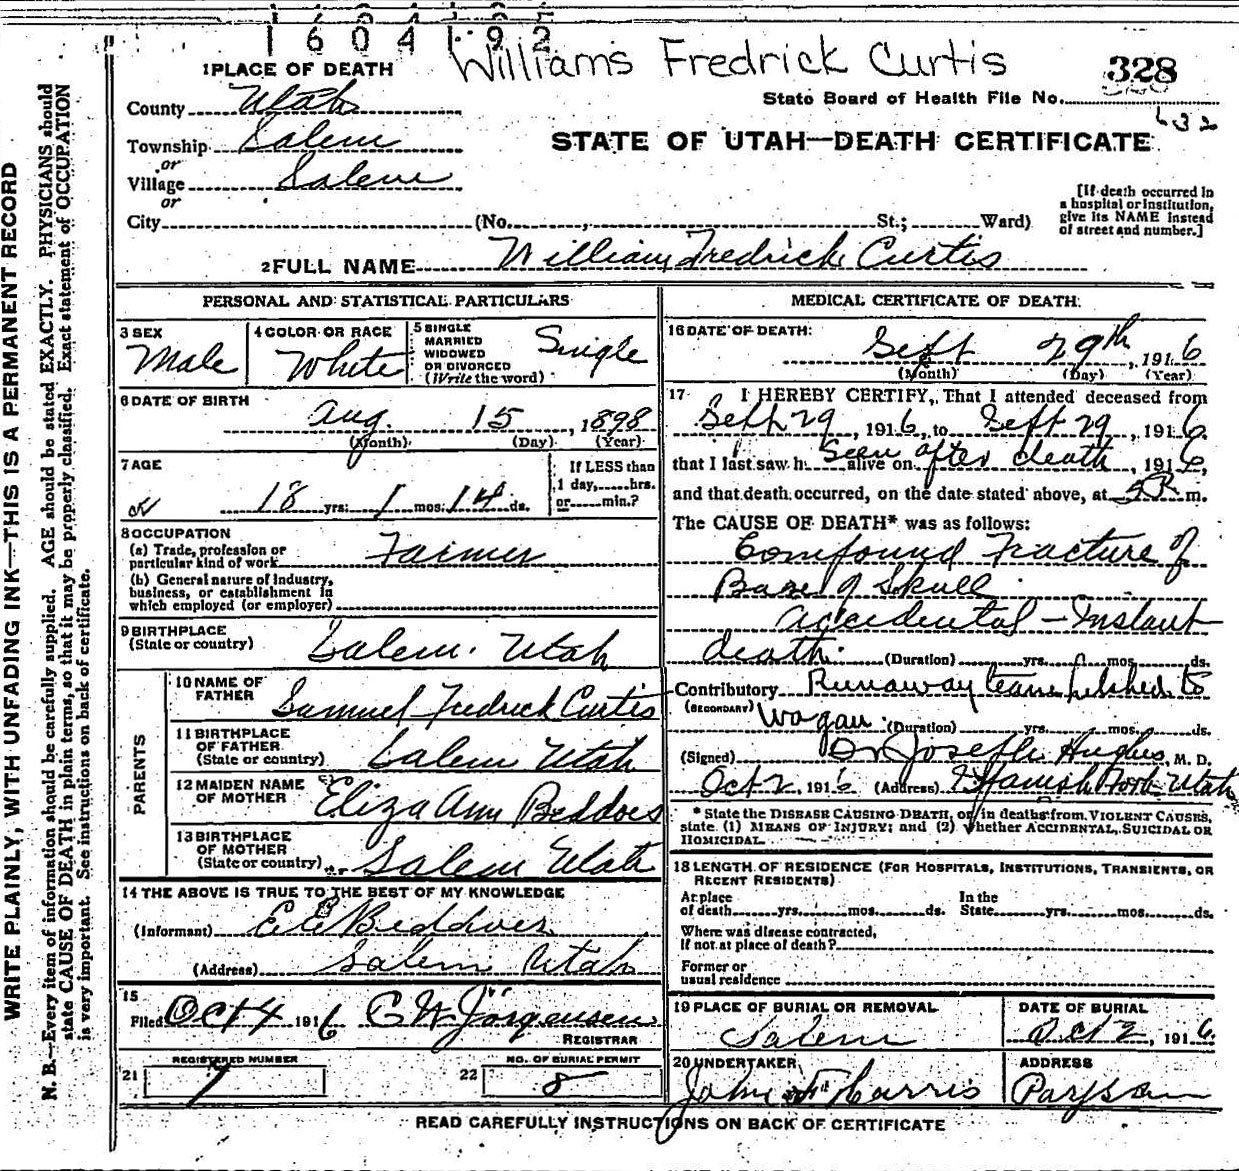 1604192
Williams Fredrick Curtis
328
1 PLACE OF DEATH
State Board of Health File No.
632
County Utah
Township Salem
or
Village Salem
or
STATE OF UTAH—DEATH CERTIFICATE
[If death occurred in a hospital or institution, give its NAME instead of street and number.]
City (No. , St.; Ward)
2 FULL NAME William Fredrick Curtis
PERSONAL AND STATISTICAL PARTICULARS
3 SEX Male
4 COLOR OR RACE White
5 SINGLE MARRIED WIDOWED OR DIVORCED (Write the word) Single
6 DATE OF BIRTH
Aug. 15, 1898
(Month) (Day) (Year)
7 AGE
18 yrs. 1 mos. 14 ds.
If LESS than 1 day, hrs. or min.?
8 OCCUPATION
(a) Trade, profession or particular kind of work Farmer
(b) General nature of Industry, business, or establishment in which employed (or employer)
9 BIRTHPLACE
(State or country) Salem. Utah
PARENTS
10 NAME OF FATHER Samuel Fredrick Curtis
11 BIRTHPLACE OF FATHER (State or country) Salem Utah
12 MAIDEN NAME OF MOTHER Eliza Ann Beddoes
13 BIRTHPLACE OF MOTHER (State or country) Salem Utah
14 THE ABOVE IS TRUE TO THE BEST OF MY KNOWLEDGE
(Informant) Beddoes
(Address) Salem Utah
15
Filed Oct 4 1916 C W Jorgensen
REGISTRAR
REGISTERED NUMBER
21 7
NO. OF BURIAL PERMIT
22 8
MEDICAL CERTIFICATE OF DEATH.
16 DATE OF DEATH:
Sept 29th, 1916
(Month) (Day) (Year)
17 I HEREBY CERTIFY, That I attended deceased from
Sept 29, 1916, to Sept 29, 1916.
that I last saw h Seen alive on after death, 1916,
and that death occurred, on the date stated above, at m.
The CAUSE OF DEATH* was as follows:
Compound Fracture of
Base of Skull
accidental - Instant
death. (Duration) yrs. mos. ds.
Contributory Runaway team hitched to
(SECONDARY) wagon. (Duration) yrs. mos. ds.
(Signed) Dr Joseph Hughes, M. D.
Oct 2 1916 (Address) Spanish Fork Utah
* State the DISEASE CAUSING DEATH, or in deaths from VIOLENT CAUSES, state (1) MEANS OF INJURY; and (2) whether ACCIDENTAL, SUICIDAL OR HOMICIDAL.
18 LENGTH OF RESIDENCE (FOR HOSPITALS, INSTITUTIONS, TRANSIENTS, OR RECENT RESIDENTS)
At place of death yrs. mos. ds. In the State yrs. mos. ds.
Where was disease contracted, if not at place of death?
Former or usual residence
19 PLACE OF BURIAL OR REMOVAL
Salem
DATE OF BURIAL
Oct 2, 1916
20 UNDERTAKER
John Harris
ADDRESS
Payson
READ CAREFULLY INSTRUCTIONS ON BACK OF CERTIFICATE
WRITE PLAINLY, WITH UNFADING INK—THIS IS A PERMANENT RECORD
N. B.—Every item of information should be carefully supplied. AGE should be stated EXACTLY. PHYSICIANS should
state CAUSE OF DEATH in plain terms, so that it may be properly classified. Exact statement of OCCUPATION
is very important. See instructions on back of certificate.